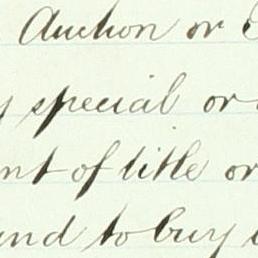 Auction or
special or
nt of title or
and to buy